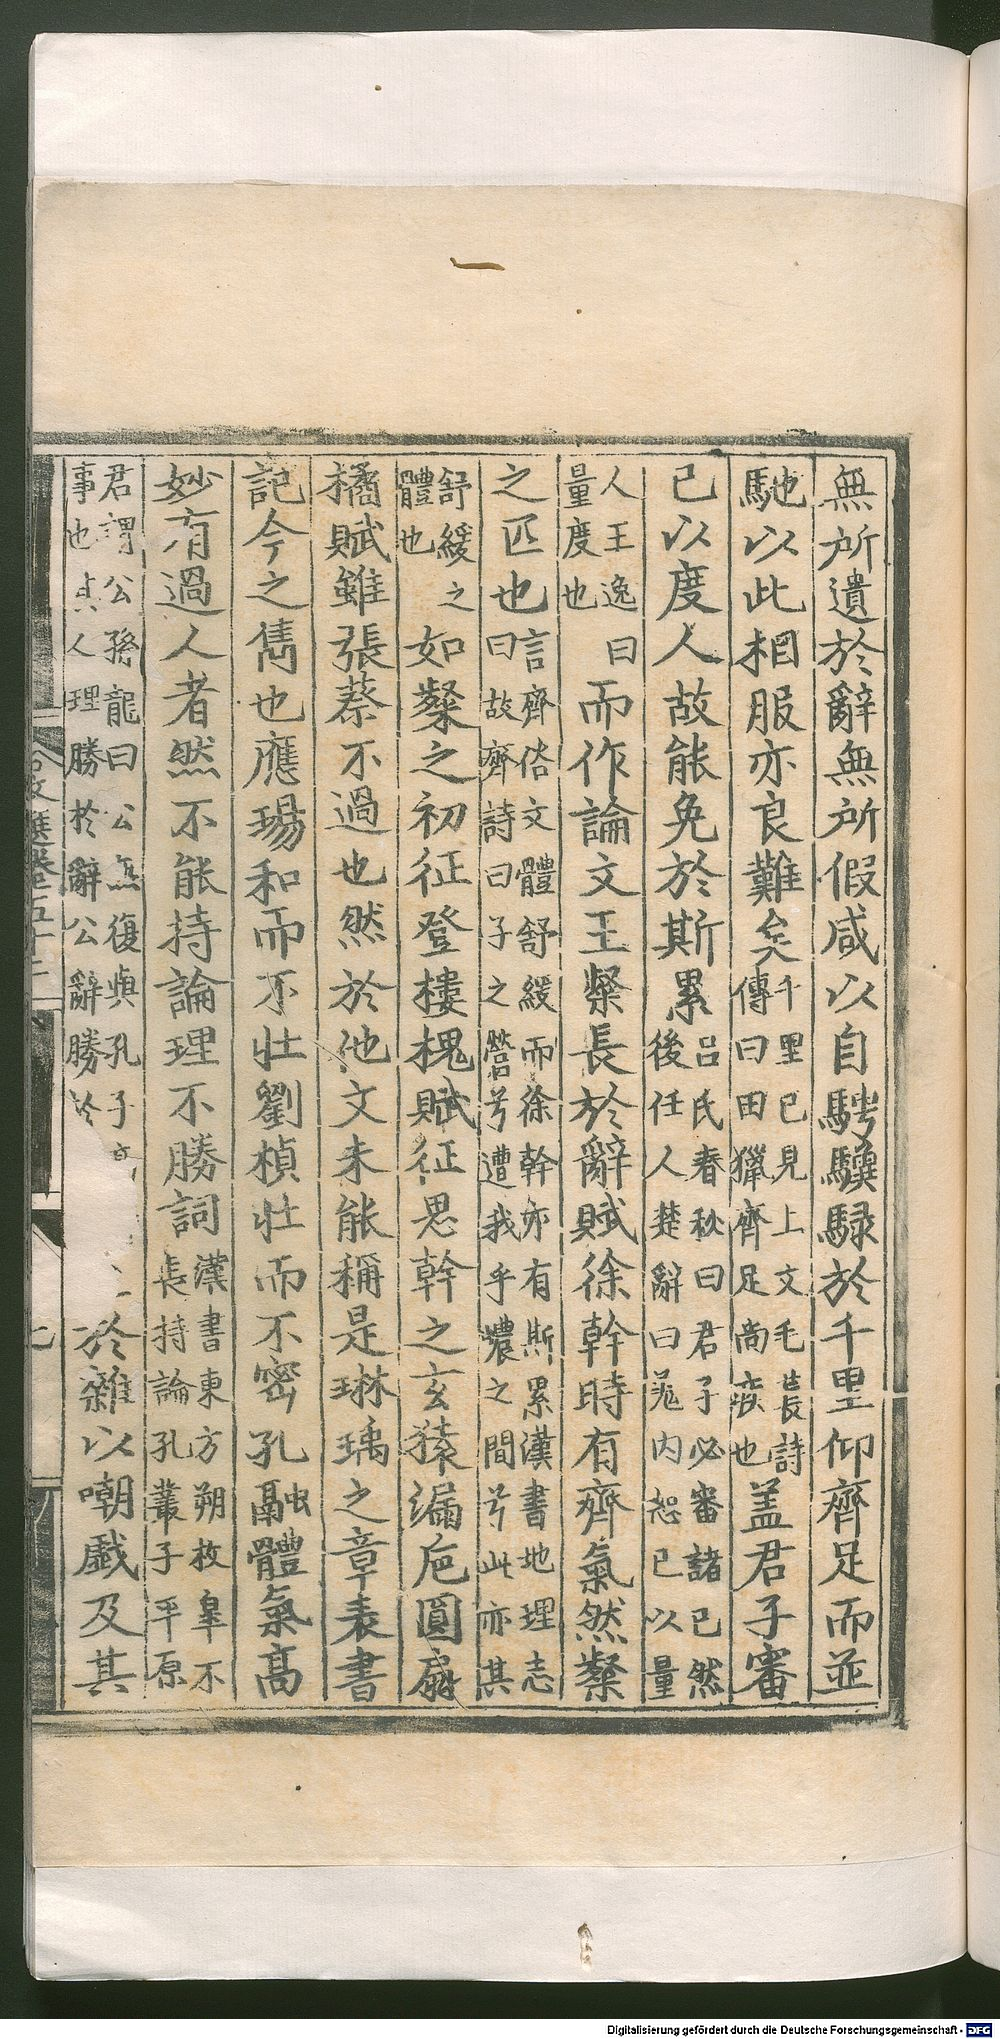 無所遺於辭無所假咸以自騁驥騄於千里仰齊足而並
馳以此相服亦良難矣千里已見上文毛萇詩傳曰田獵齊足尚疾也蓋君子審
己以度人故能免於斯累呂氏春秋曰君子必審諸己然後任人楚辭曰羌內恕己以量
人王逸曰量度也而作論文王粲長於辭賦徐幹時有齊氣然粲
之匹也言齊俗文體舒緩而徐幹亦有斯累漢書地理志曰故齊詩曰子之營兮遭我乎㺜之間兮此亦其
舒緩之體也如粲之初征登樓槐賦征思幹之玄猿漏卮圓扇
橘賦雖張蔡不過也然於他文未能稱是琳瑀之章表書
記今之儁也應瑒和而不壯劉楨壯而不密孔融體氣高
妙有過人者然不能持論理不勝詞漢書東方朔枚皋不長持論孔叢子平原
君謂公孫龍曰公無復與孔子事也其人理勝於辭公辭勝於於雜以嘲戲及其
文選卷五十二
Digitalisierung gefördert durch die Deutsche Forschungsgemeinschaft - DFG